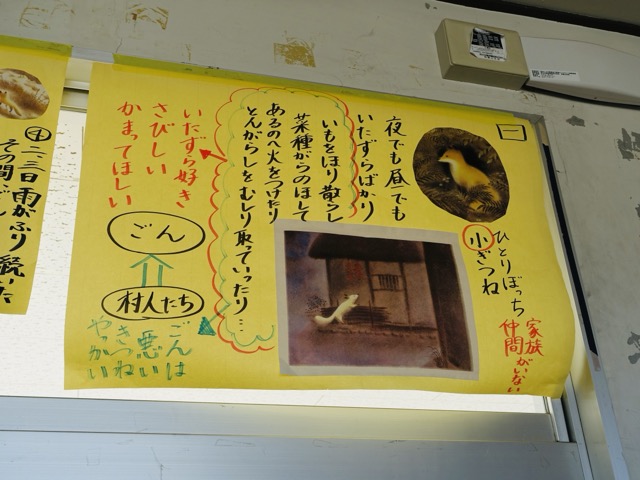 一
ひとりぼっち
小ぎつね
家族
仲間がいない
夜でも昼でも
いたずらばかり
いもをほり散らし
菜種がらのほして
あるのへ火をつけたり
とんがらしをむしり取っていったり…
いたずら好き
さびしい
かまってほしい
ごん
村人たち
ごんは
悪い
きつね
やっかい
二、三日雨がふり続いた
その間、ごん